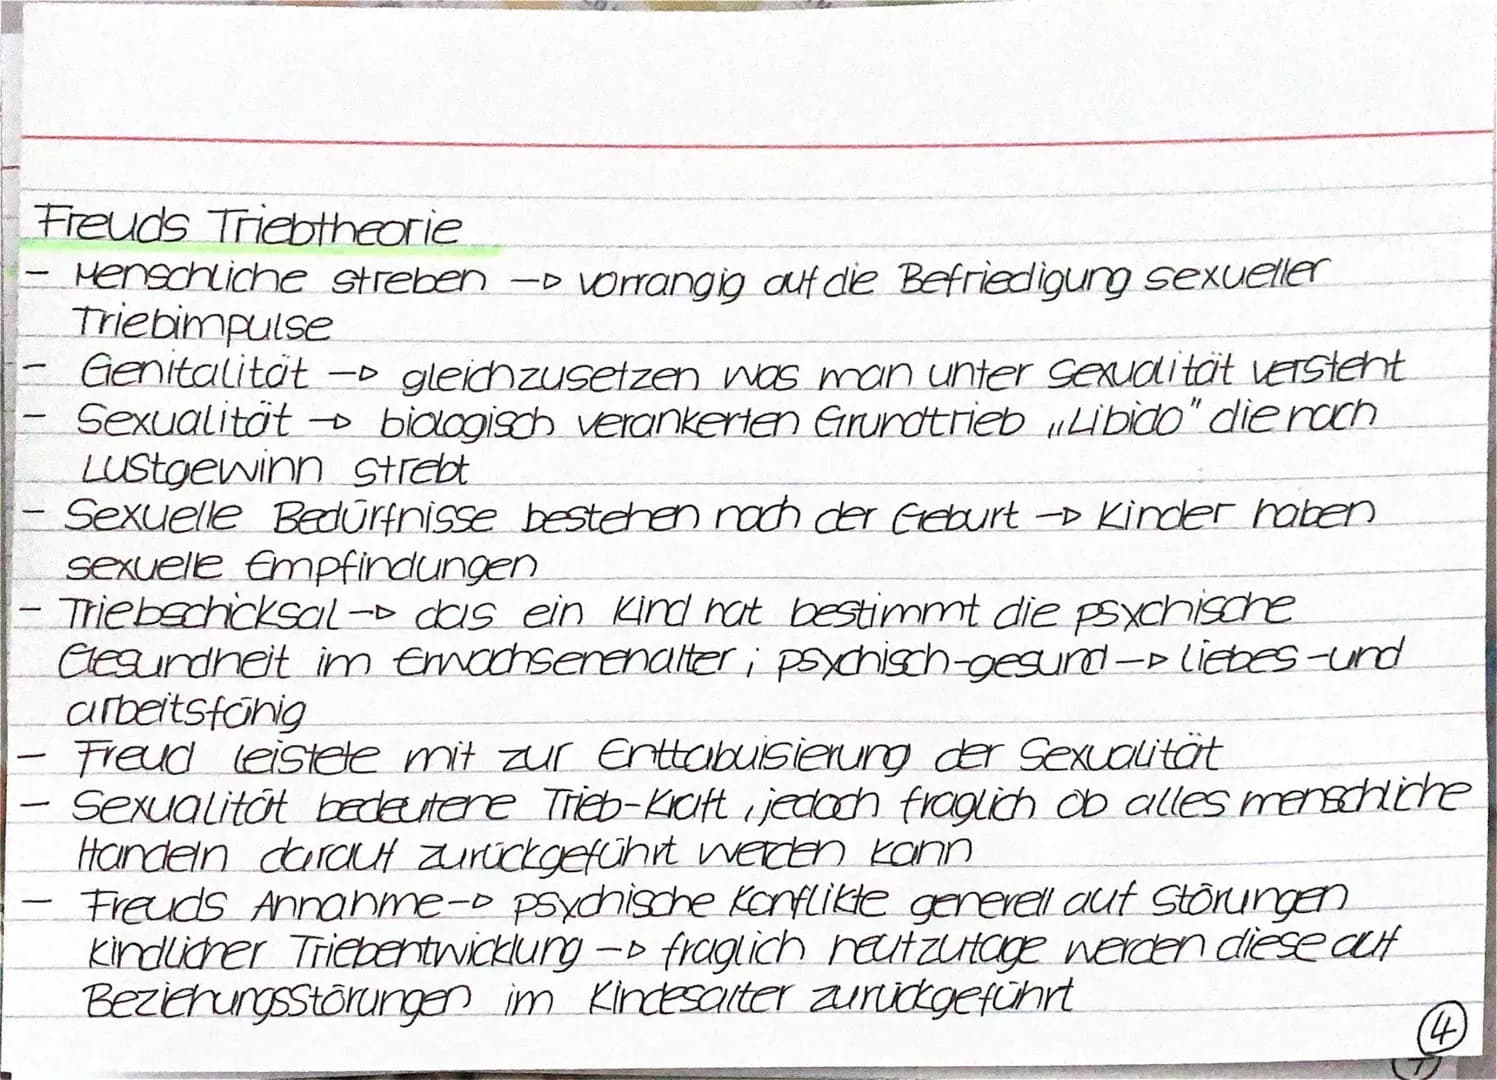 Freuds Triebtheorie
- Menschliche streben → vorrangig auf die Befriedigung sexueller
Triebimpulse
- Genitalität → gleichzusetzen was man unter Sexualität versteht
- Sexualität → biologisch verankerten Grundtrieb „Libido" die nach
Lustgewinn strebt
- Sexuelle Bedürfnisse bestehen nach der Geburt → Kinder haben
sexuelle Empfindungen
- Triebschicksal → das ein Kind hat bestimmt die psychische
Gesundheit im Erwachsenenalter ; psychisch-gesund → liebes-und
arbeitsfähig
- Freud leistete mit zur Enttabuisierung der Sexualität
- Sexualität bedeutene Trieb-Kraft, jedoch fraglich ob alles menschliche
Handeln darauf zurückgeführt werden kann
- Freuds Annahme → psychische Konflikte generell auf Störungen
kindlicher Triebentwicklung → fraglich heutzutage werden diese auf
Beziehungsstörungen im Kindesalter zurückgeführt
4